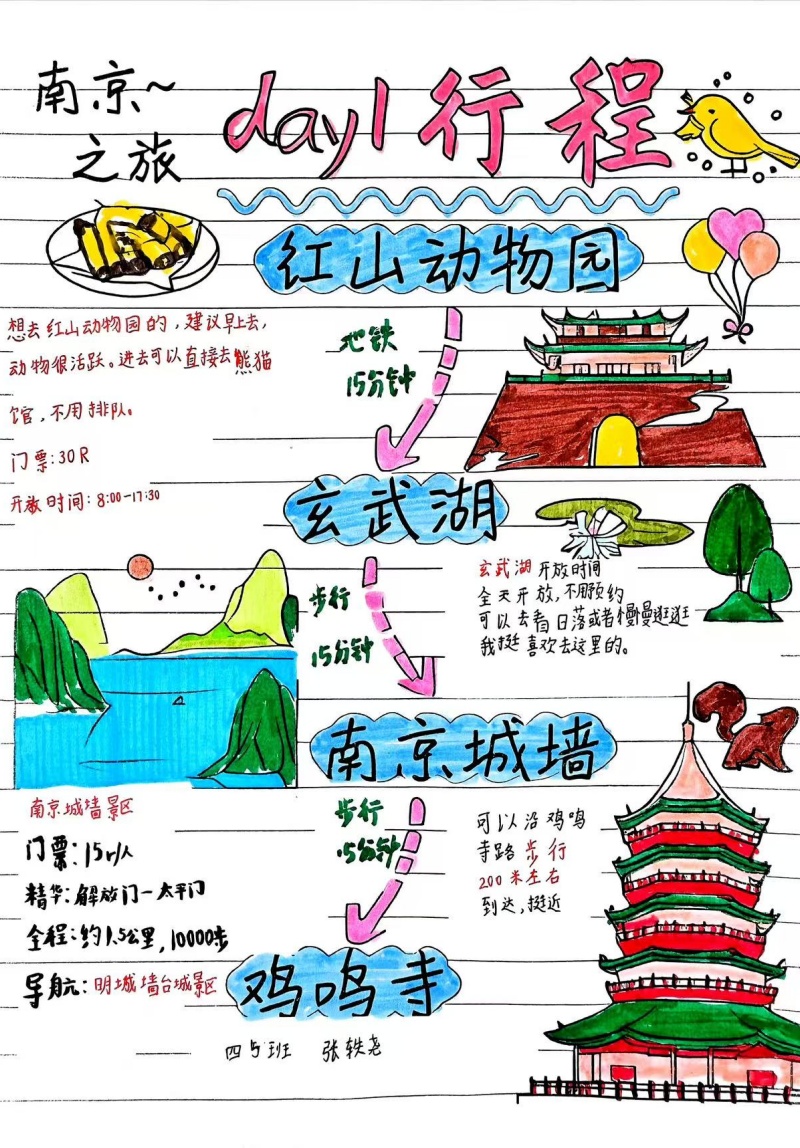 南京~
之旅
day1行程
红山动物园
想去红山动物园的，建议早上去，
动物很活跃。进去可以直接去熊猫
馆，不用排队。
门票:30R
开放时间：8:00-17:30
地铁
15分钟
玄武湖
玄武湖开放时间
全天开放，不用预约
可以去看日落或者慢慢逛逛
我挺喜欢去这里的。
步行
15分钟
南京城墙
南京城墙景区
门票：15r/人
精华：解放门一太平门
全程：约1.5公里，10000步
导航：明城墙台城景区
步行
5分钟
可以沿鸡鸣
寺路步行
200米左右
到达，挺近
鸡鸣寺
四5班 张轶尧